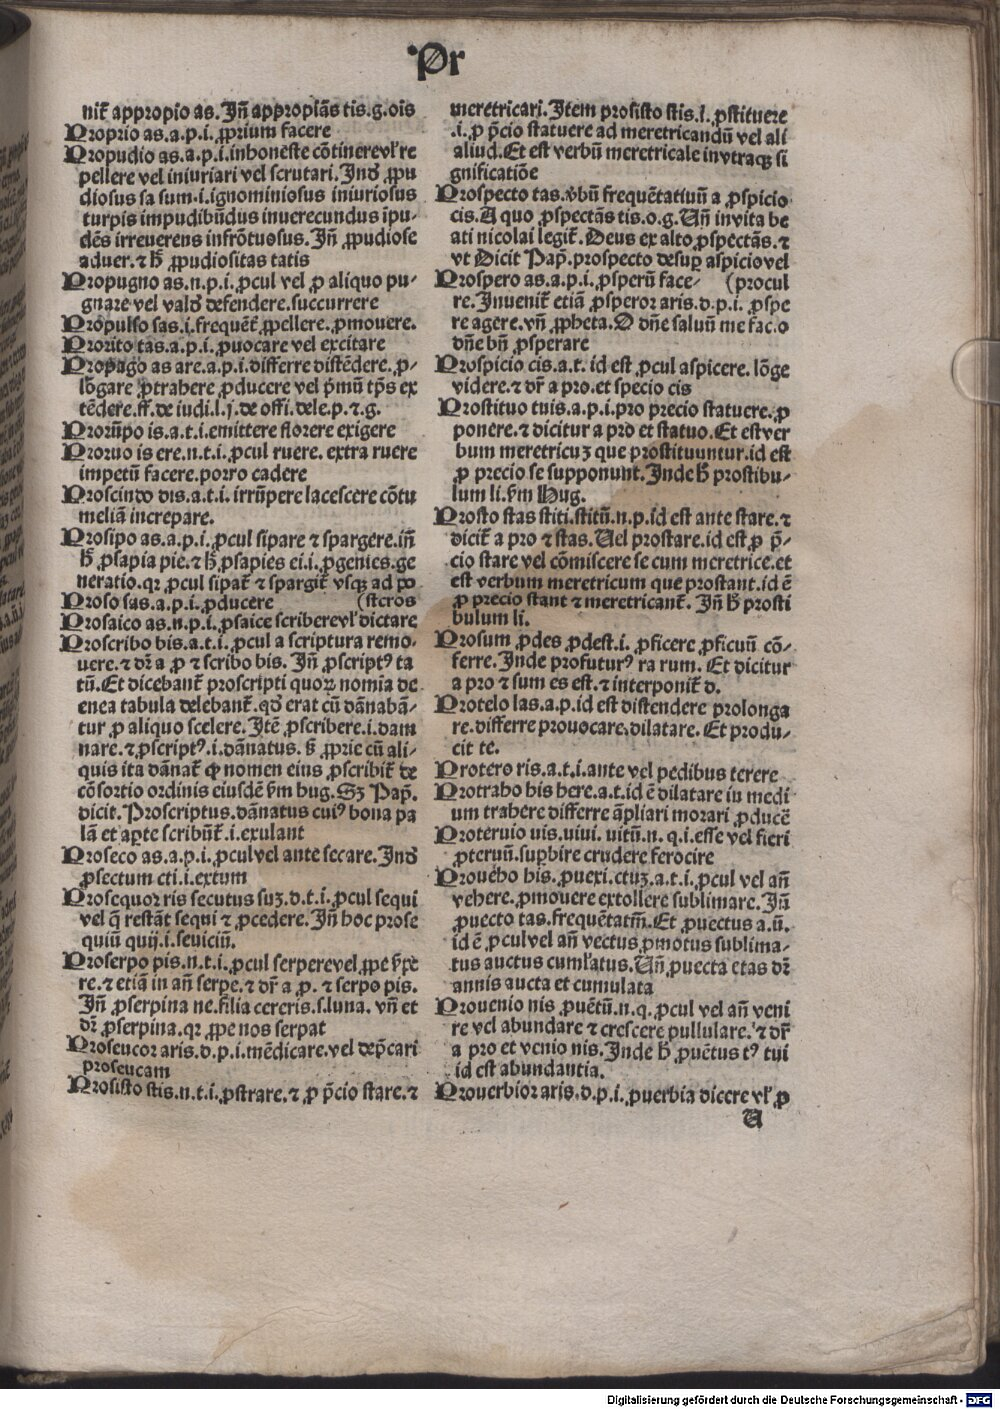 Pr
nit᷑ appropio as. Jn̄ appropiãs tis.g.ois
Proprio as.a.p.i. ꝓprium facere
Propudio as.a.p.i. inhoneste cõtinere vl̛ re
pellere vel iniuriari vel scrutari. Inď ꝓpu
diosus sa sum.i.ignominiosus iniuriosus
turpis impudibūdus inuerecundus ĩpu-
dẽs irreuerens infrõtuosus. Jn̄ ꝓpudiose
aduer.⁊ ħ ꝓpudiositas tatis
Propugno as.n.p.i.ꝓcul vel ꝓ aliquo pu-
gnare vel valď defendere.succurrere
Propulso sas.i.frequẽt᷑ ꝓpellere.ꝓmouere.
Prorito tas.a.p.i.ꝓuocare vel excitare
Propago as are.a.p.i.differre distẽdere.ꝓ-
lõgare ꝓtrahere ꝓducere vel p̱mū tp̄s ex
tẽdere.ff.de iudi.l.j.de offi.dele.p.⁊.g.
Prorūpo is.a.t.i.emittere florere exigere
Proruo is ere.n.t.i.ꝓcul ruere.extra ruere
impetū facere.porro cadere
Proscindo dis.a.t.i.irrūpere lacescere cõtu
meliã increpare.
Prosipo as.a.p.i.ꝓcul sipare ⁊ spargere.in̄
ħ ꝓsapia pie.⁊ ħ ꝓsapies ei.i.ꝓgenies.ge
neratio.qr ꝓcul sipat᷑ ⁊ spargit᷑ vsqꝫ ad po
Proso sas.a.p.i.ꝓducere (steros
Prosaico as.n.p.i.ꝓsaice scribere vl̛ dictare
Proscribo bis.a.t.i.ꝓcul a scriptura remo-
uere.⁊ dr̄ a ꝓ ⁊ scribo bis. Jn̄ ꝓscriptꝰ ta
tū.Et dicebant᷑ proscripti quorꝝ nomĩa de
enea tabula delebant᷑.qď erat cū dãnabã-
tur ꝓ aliquo scelere. Itẽ ꝓscribere.i.dam
nare.⁊ ꝓscriptꝰ.i.dãnatus. ꝟ ꝓprie cū ali-
quis ita dãnat᷑ ꝙ nomen eius ꝓscribit᷑ de
cõsortio ordinis eiusdẽ ẜm hug.Sꝫ Pap̄.
dicit.Proscriptus.dãnatus cuiꝰ bona pa
lã et aꝑte scribūt᷑.i.exulant
Proseco as.a.p.i.ꝓcul vel ante secare.Inď
ꝓsectum cti.i.extum
Prosequor ris secutus suꝫ.d.t.i.ꝓcul sequi
vel q̄ restãt sequi ⁊ ꝓcedere.Jn̄ hoc prose
quiū quij.i.seuiciū.
Proserpo pis.n.t.i.ꝓcul serpere vel ꝓpe ẜpe
re.⁊ etiã in an̄ serpe.⁊ dr̄ a ꝓ.⁊ serpo pis.
Jn̄ ꝓserpina ne.filia cereris.s.luna. vn̄ et
dr̄ ꝓserpina.qr ꝓpe nos serpat
Proseucor aris.d.p.i.mẽdicare.vel dep̄cari
proseucam
Prosisto stis.n.t.i.ꝓstrare.⁊ ꝓ p̄cio stare.⁊
meretricari.Item prosisto stis.l.ꝓstituere
.i.ꝓ p̄cio statuere ad meretricandū vel ali
aliud.Et est verbū meretricale in vtraqꝫ si
gnificatiõe
Prospecto tas.ꝟbū frequẽtatiuū a ꝓspicio
cis.A quo ꝓspectãs tis.o.g.Un̄ in vita be
ati nicolai legit᷑.Deus ex alto ꝓspectãs.⁊
vt Dicit Pap̄.prospecto desuꝑ aspicio vel
Prospero as.a.p.i.ꝓsperū face- (procul
re.Inuenit᷑ etiã ꝓsperor aris.d.p.i.ꝓspe
re agere.vn̄ ꝓpheta.O dn̄e saluū me fac.o
dn̄e bn̄ ꝓsperare
Prospicio cis.a.t.id est ꝓcul aspicere.lõge
videre.⁊ dr̄ a pro.et specio cis
Prostituo tuis.a.p.i.pro precio statuere.ꝓ
ponere.⁊ dicitur a pro et statuo.Et est ver
bum meretricuꝫ que prostituuntur.id est
ꝓ precio se supponunt.Inde ħ prostibu-
lum li.ẜm Hug.
Prosto stas stiti.stitū.n.p.id est ante stare.⁊
dicit᷑ a pro ⁊ stas.Uel prostare.id est ꝓ p̄-
cio stare vel cõmiscere se cum meretrice.et
est verbum meretricum que prostant.id ẽ
ꝓ precio stant ⁊ meretricant᷑. Jn̄ ħ prosti
bulum li.
Prosum ꝓdes ꝓdest.i.ꝓficere ꝓficuū cõ-
ferre.Inde profuturꝰ ra rum. Et dicitur
a pro ⁊ sum es est.⁊ interponit᷑ d.
Protelo las.a.p.id est distendere prolonga
re.differre prouocare.dilatare. Et produ-
cit te.
Protero ris.a.t.i.ante vel pedibus terere
Protraho his here.a.t.id ẽ dilatare in medi
um trahere differre ãpliari morari ꝓducẽ
Proteruio uis.uiui.uitū.n.q.i.esse vel fieri
ꝓteruū.suꝑbire crudere ferocire
Proueho his.ꝓuexi.ctuꝫ.a.t.i.ꝓcul vel an̄
vehere.ꝓmouere extollere sublimare. Jn̄
ꝓuecto tas.frequẽtatm̄.Et ꝓuectus a.ū.
id ẽ ꝓcul vel an̄ vectus ꝓmotus sublima-
tus auctus cuml̛atus.Un̄ ꝓuecta etas dr̄
annis aucta et cumulata
Prouenio nis ꝓuẽtū.n.q.ꝓcul vel an̄ veni
re vel abundare ⁊ crescere pullulare.⁊ dr̄
a pro et venio nis.Inde ħ ꝓuẽtus tꝰ tui
id est abundantia.
Prouerbior aris.d.p.i.ꝓuerbia dicere vl̛ ꝓ
U
Digitalisierung gefördert durch die Deutsche Forschungsgemeinschaft - DFG